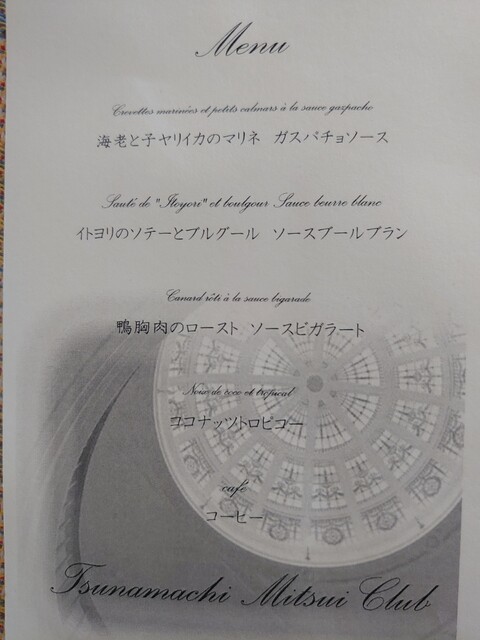 Menu
Crevettes marinées et petits calmars à la sauce gazpacho
海老と子ヤリイカのマリネ ガスパチョソース
Sauté de "Itoyori" et boulgour Sauce beurre blanc
イトヨリのソテーとブルグール ソースブールブラン
Canard rôti à la sauce bigarade
鴨胸肉のロースト ソースビガラート
Noix de coco et tropical
ココナッツトロピコー
café
コーヒー
Tsunamachi Mitsui Club